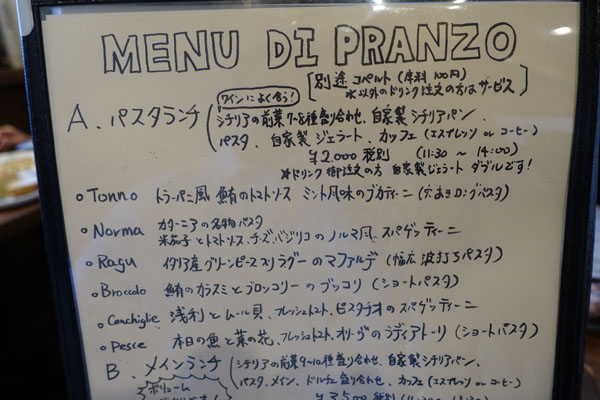 MENU DI PRANZO
[別途 コペルト (席料 100円)
※水以外のドリンク注文の方はサービス]
ワインによく合う!
A. パスタランチ (シチリアの前菜 7~8種盛り合わせ、自家製シチリアパン、
パスタ、自家製ジェラート、カッフェ (エスプレッソ or コーヒー)
¥2,000 税別 (11:30 ~ 14:00)
※ドリンク御注文の方 自家製ジェラート ダブルです!
○Tonno トラーパニ風 鮪のトマトソース ミント風味のブカティーニ (穴あきロングパスタ)
○Norma カターニアの名物パスタ
米茄子とトマトソース、チーズ、バジリコのノルマ風 スパゲッティーニ
○Ragu イタリア産グリーンピース入りラグーのマファルデ (幅広 波打ちパスタ)
○Broccolo 鮪のカラスミとブロッコリーの ブッコリ (ショートパスタ)
○Conchiglie 浅利とムール貝、フレッシュトマト、ピスタチオのスパゲッティーニ
○Pesce 本日の魚と菜の花、フレッシュトマト、オリーヴのラディアトーリ (ショートパスタ)
B. メインランチ (シチリアの前菜 9~10種盛り合わせ、自家製シチリアパン、
パスタ、メイン、ドルチェ盛り合わせ、カッフェ (エスプレッソ or コーヒー)
ボリューム
¥3,500